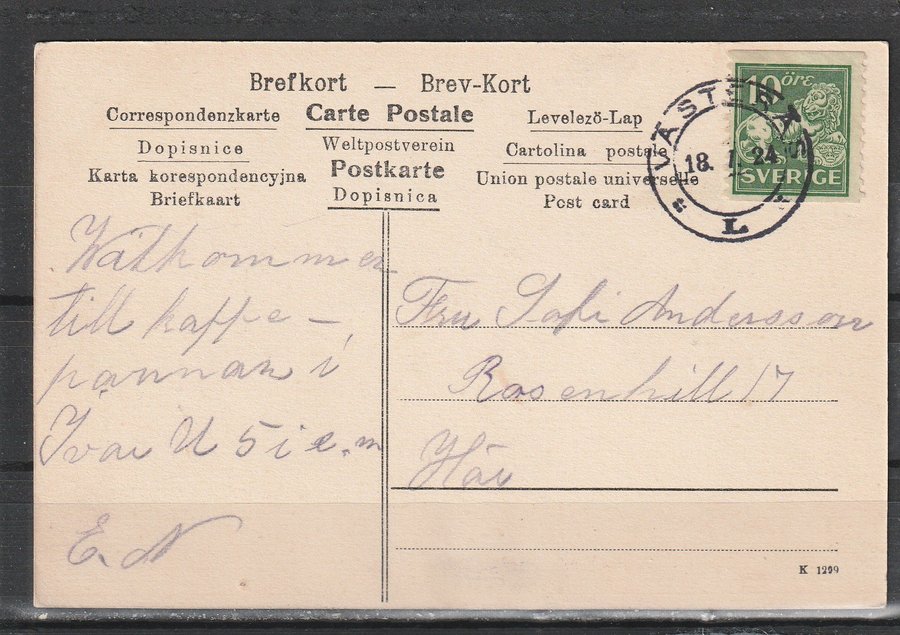 Brefkort — Brev-Kort
Correspondenzkarte Carte Postale Levelező-Lap
Dopisnice Weltpostverein Cartolina postale
Karta korespondencyjna Postkarte Union postale universelle
Briefkaart Dopisnica Post card
10 ÖRE
SVERIGE
VÄSTERÅS
18. 1. 24
L
Wälkommen
till kaffe-
pannan i
Ivar U 5 i e.m
E. N
Fru Sofi Andersson
Rosenhill 17
Här
K 1299